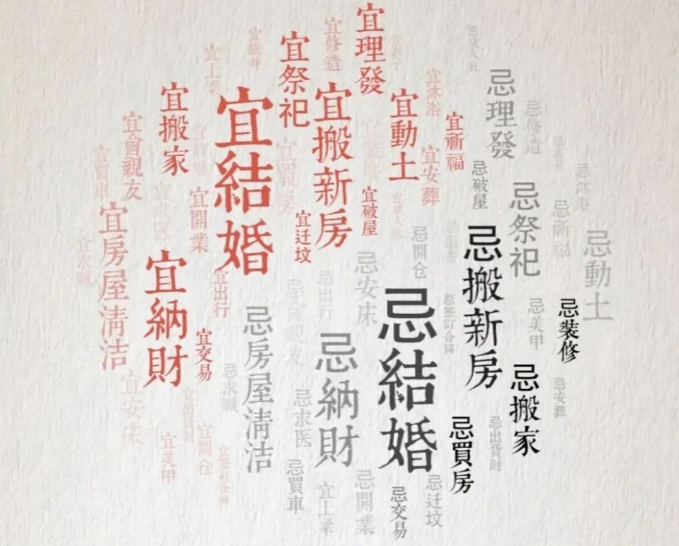 宜理發
宜修造
宜祭祀
宜上梁
宜搬新房
宜動土
宜沐浴
宜搬家
宜結婚
宜祈福
宜會親友
宜安葬
宜買車
宜開業
宜破屋
宜迁坟
宜房屋清洁
宜納財
宜出行
宜交易
宜安床
宜美甲
宜開仓
忌理發
忌修造
忌破屋
忌沐浴
忌祭祀
忌祈福
忌動土
忌開仓
忌搬新房
忌安床
忌出行
忌結婚
忌签订合同
忌美甲
忌装修
忌房屋清洁
忌納財
忌求職
忌搬家
忌安葬
忌求医
忌買房
忌出貨財
忌買車
宜上梁
忌開業
忌交易
忌迁坟